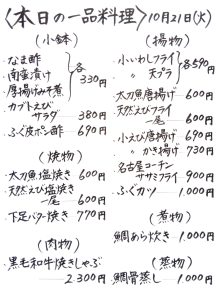 〈本日の一品料理〉10月21日(火)
(小鉢)
なま酢
南蛮漬け
唐揚げみそ煮
各330円
カブトえび
サラダ 380円
ふぐ皮ポン酢 690円
(焼物)
太刀魚塩焼き 600円
天然えび塩焼き
一尾 600円
下足バター焼き 770円
(肉物)
黒毛和牛焼きしゃぶ
2300円
(揚物)
小いわしフライ
〃 天プラ
各690円
太刀魚唐揚げ 600円
天然えびフライ
一尾 600円
小えび唐揚げ 690円
〃 かき揚げ 730円
名古屋コーチン
ササミフライ 900円
ふぐカツ 1.000円
(煮物)
鯛あら炊き 1.000円
(蒸物)
鯛骨蒸し 1.000円